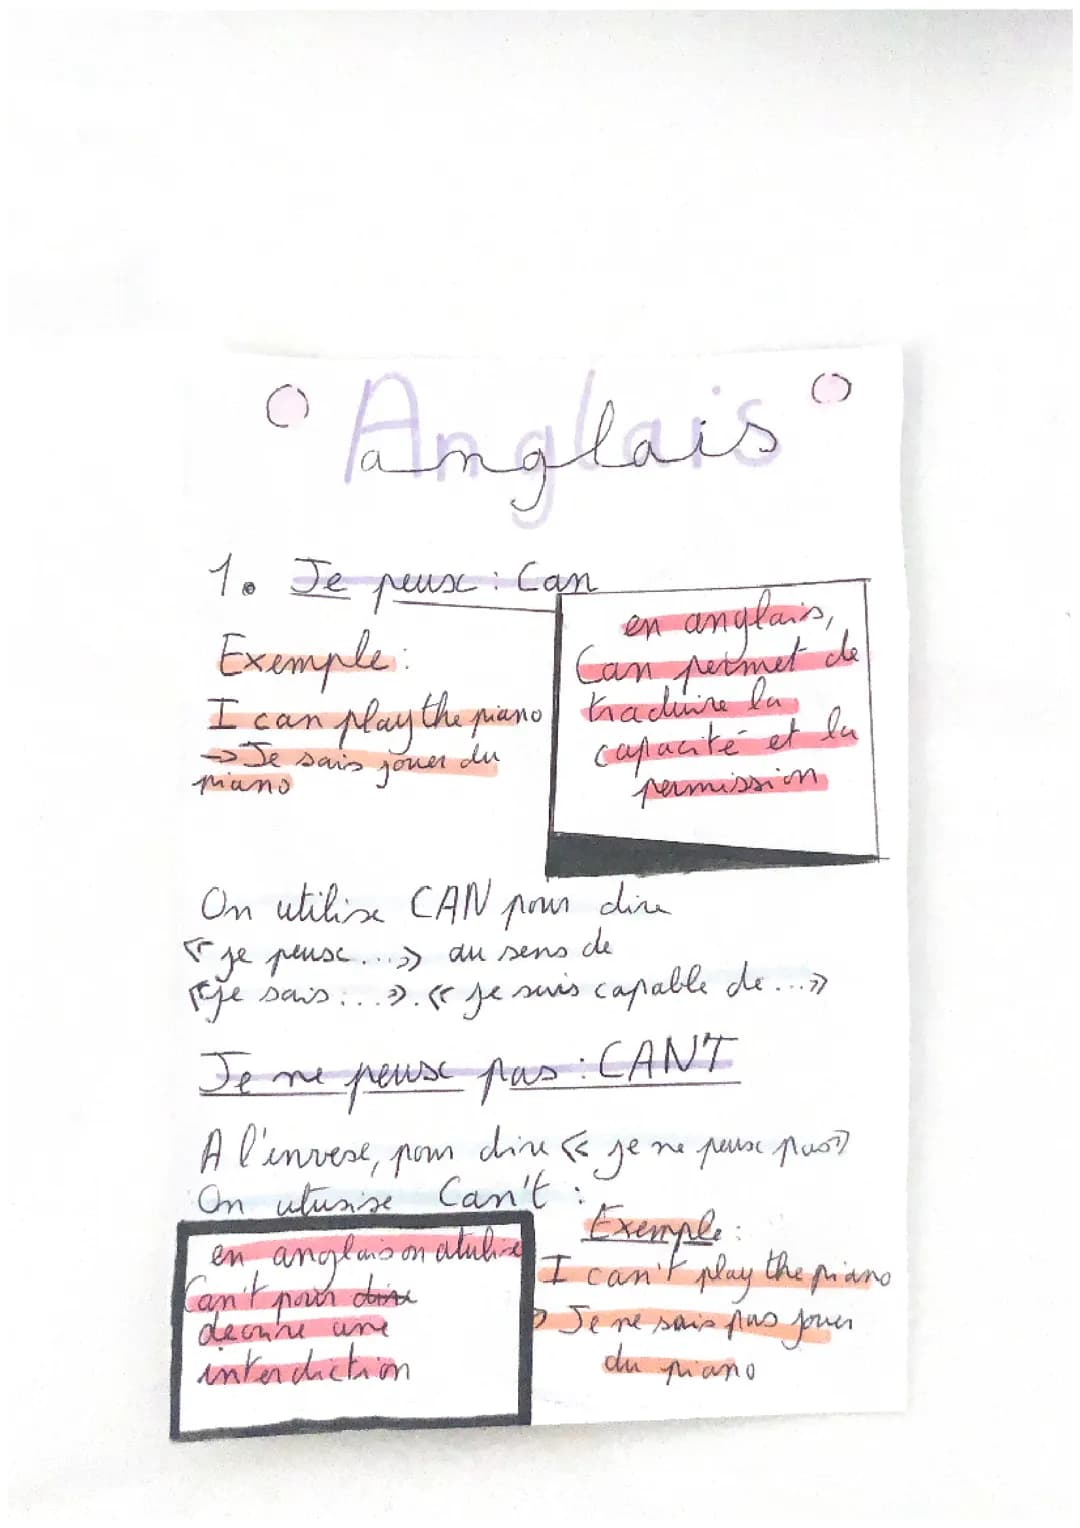 Anglais
anglais
1. Je peux : Can
Exemple :
I can play the piano
→ Je sais jouer du
piano
en anglais,
Can permet de
traduire la
capacité et la
permission
On utilise CAN pour dire
« je peux ... » au sens de
« je sais : ... ». « je suis capable de ... »
Je ne peux pas : CAN'T
A l'invese, pour dire « je ne peux pas »
On utusise Can't :
en anglais on atulise
Can't pour dire
decrire une
interdiction
Exemple :
I can't play the piano
→ Je ne sais pas jouer
du piano